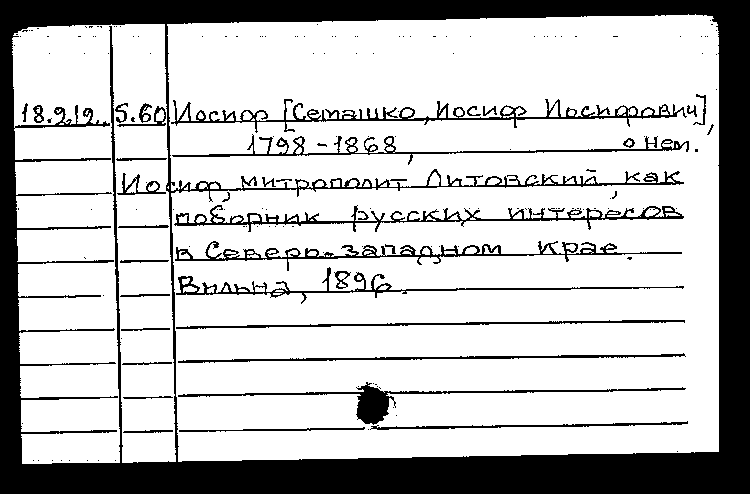 18.9.12. 5.60 Иосиф [Семашко, Иосиф Иосифович],
1798-1868, о нем.
Иосиф, митрополит Литовский, как
поборник русских интересов
в Северо-западном крае.
Вильна, 1896.